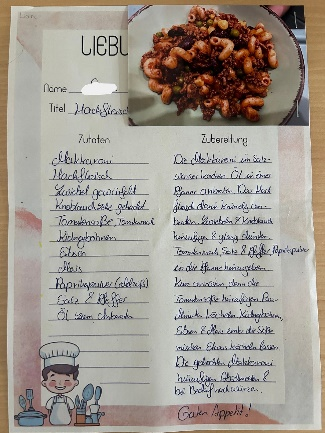 LIEBL
Name
Titel Hackfleisch
Zutaten
Makkaroni
Hackfleisch
Zwiebel gewürfelt
Knoblauchzehe gehackt
Tomatensoße, Tomatenmark
Kidneybohnen
Erbsen
Mais
Paprikapulver (edelsüß)
Salz & Pfeffer
Öl zum Anbraten
Zubereitung
Die Makkaroni im Salz-
wasser kochen. Öl in einer
Pfanne erhitzen. Das Hack-
fleisch darin krümelig an-
braten. Zwiebeln & Knoblauch
hinzufügen & glasig dünsten.
Tomatenmark, Salz & Pfeffer, Paprikapulver
in die Pfanne hinzugeben.
Kurz anrösten, dann die
Tomatensoße hinzufügen
Kidneybohnen,
Erbsen & Mais unter die Soße
mischen. Etwas köcheln lassen.
Die gekochten Makkaroni
hinzufügen &
bei Bedarf nachwürzen.
Guten Appetit!